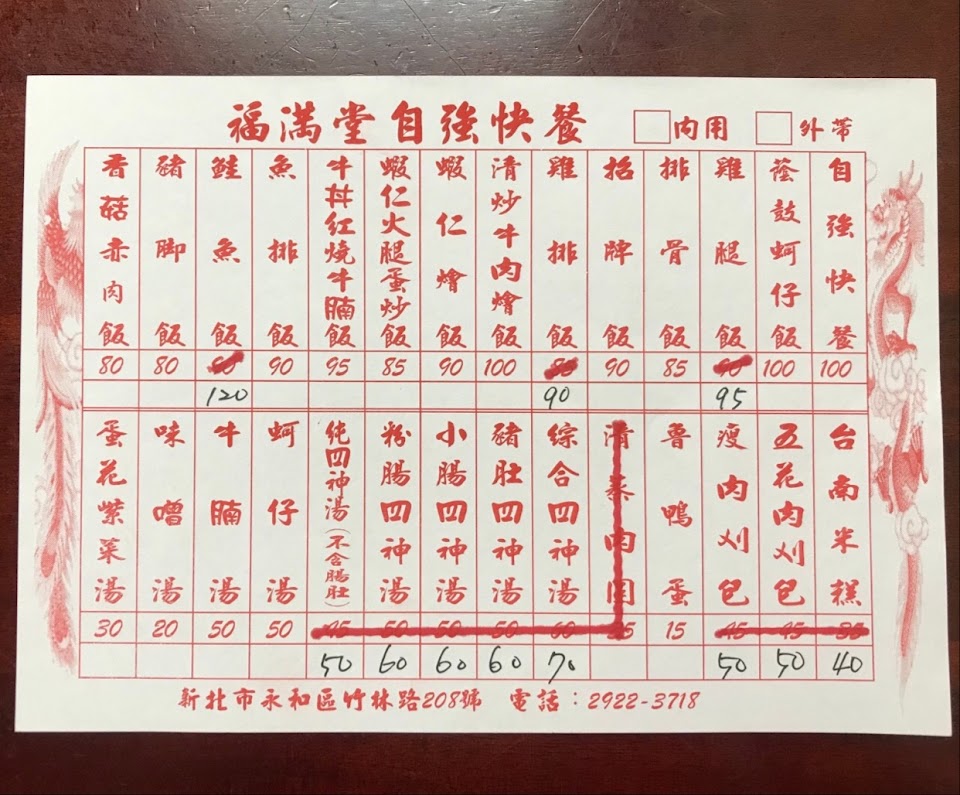 福滿堂自強快餐
內用
外帶
自強快餐
蔭鼓蚵仔飯
雞腿飯
排骨飯
招牌飯
雞排飯
清炒牛肉燴飯
蝦仁燴飯
蝦仁火腿蛋炒飯
牛丼紅燒牛腩飯
魚排飯
鮭魚飯
豬腳飯
香菇赤肉飯
80 80 90 95 85 90 100 90 85 100 100
120 90 95
台南米糕
五花肉刈包
瘦肉刈包
魯鴨蛋
清蒸肉圓
綜合四神湯
豬肚四神湯
小腸四神湯
粉腸四神湯
純四神湯(不含腸肚)
蚵仔湯
牛腩湯
味噌湯
蛋花紫菜湯
30 20 50 50 45 50 50 50 60 15 45 45 35
50 60 60 60 70 50 50 40
新北市永和區竹林路208號 電話：2922-3718